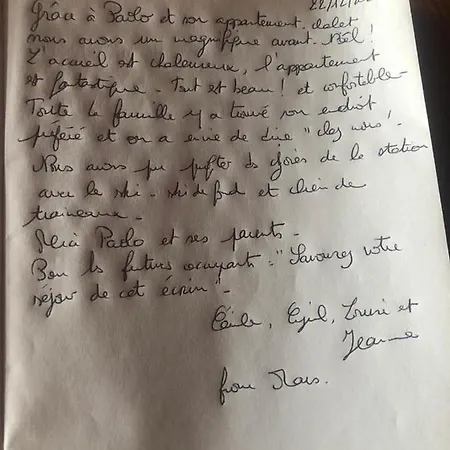 22/12/
Grâce à Paolo et son appartement chalet
nous avons un magnifique avant Noël!
L'accueil est chaleureux, l'appartement
est fantastique. Tout est beau! et confortable
Toute la famille y a trouvé son endroit
préféré et on a envie de dire "chez nous!
Nous avons pu profiter des joies de la station
avec le ski - ski de fond et chien de
traineaux.
Merci Paolo et ses parents.
Pour les futurs occupants: "Savourez votre
séjour de cet écrin".
Cécile, et
Jeanne
from